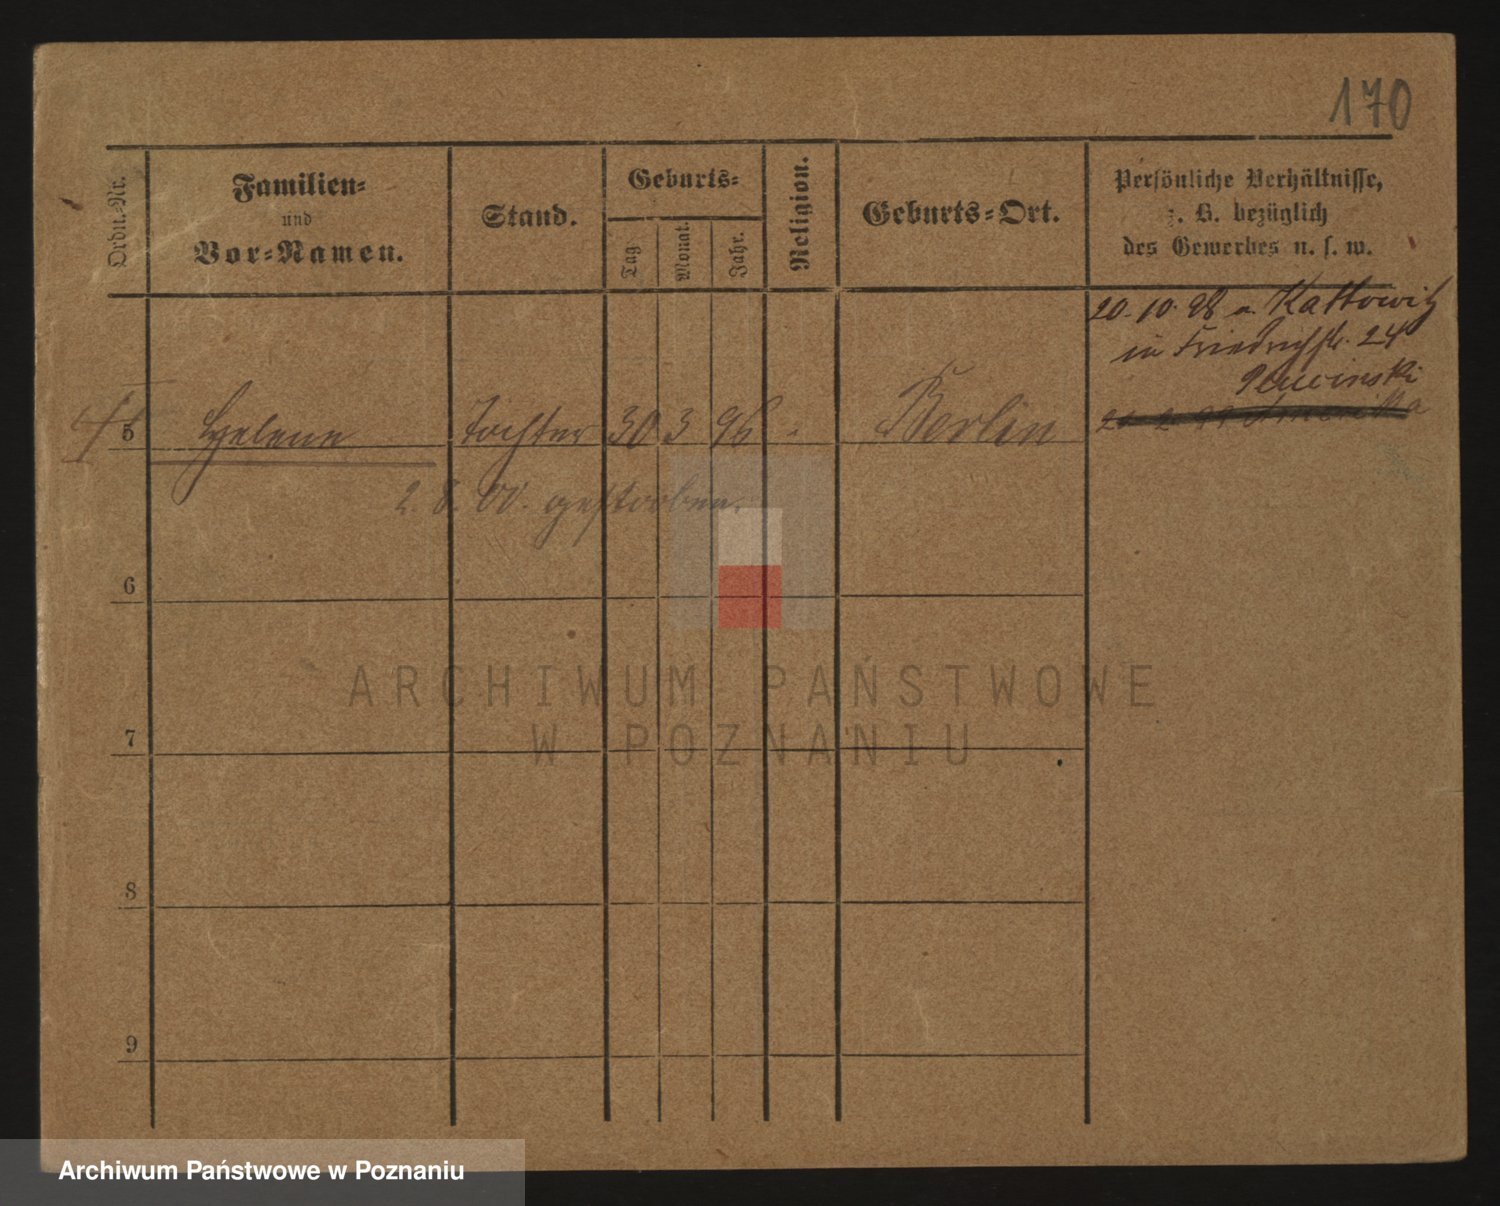 170
Ordn.-Nr.
Familien-
und
Vor-Namen.
Stand.
Geburts-
Tag
Monat.
Jahr.
Religion.
Geburts-Ort.
Persönliche Verhältnisse,
z. B. bezüglich
des Gewerbes u. s. w.
20. 10. 98 a. Kattowitz
in Friedrichstr. 24
5 Helene Tochter 30 3 96 - Berlin
2. 8. 00. gestorben.
6
ARCHIWUM PAŃSTWOWE
W POZNANIU
7
8
9
Archiwum Państwowe w Poznaniu